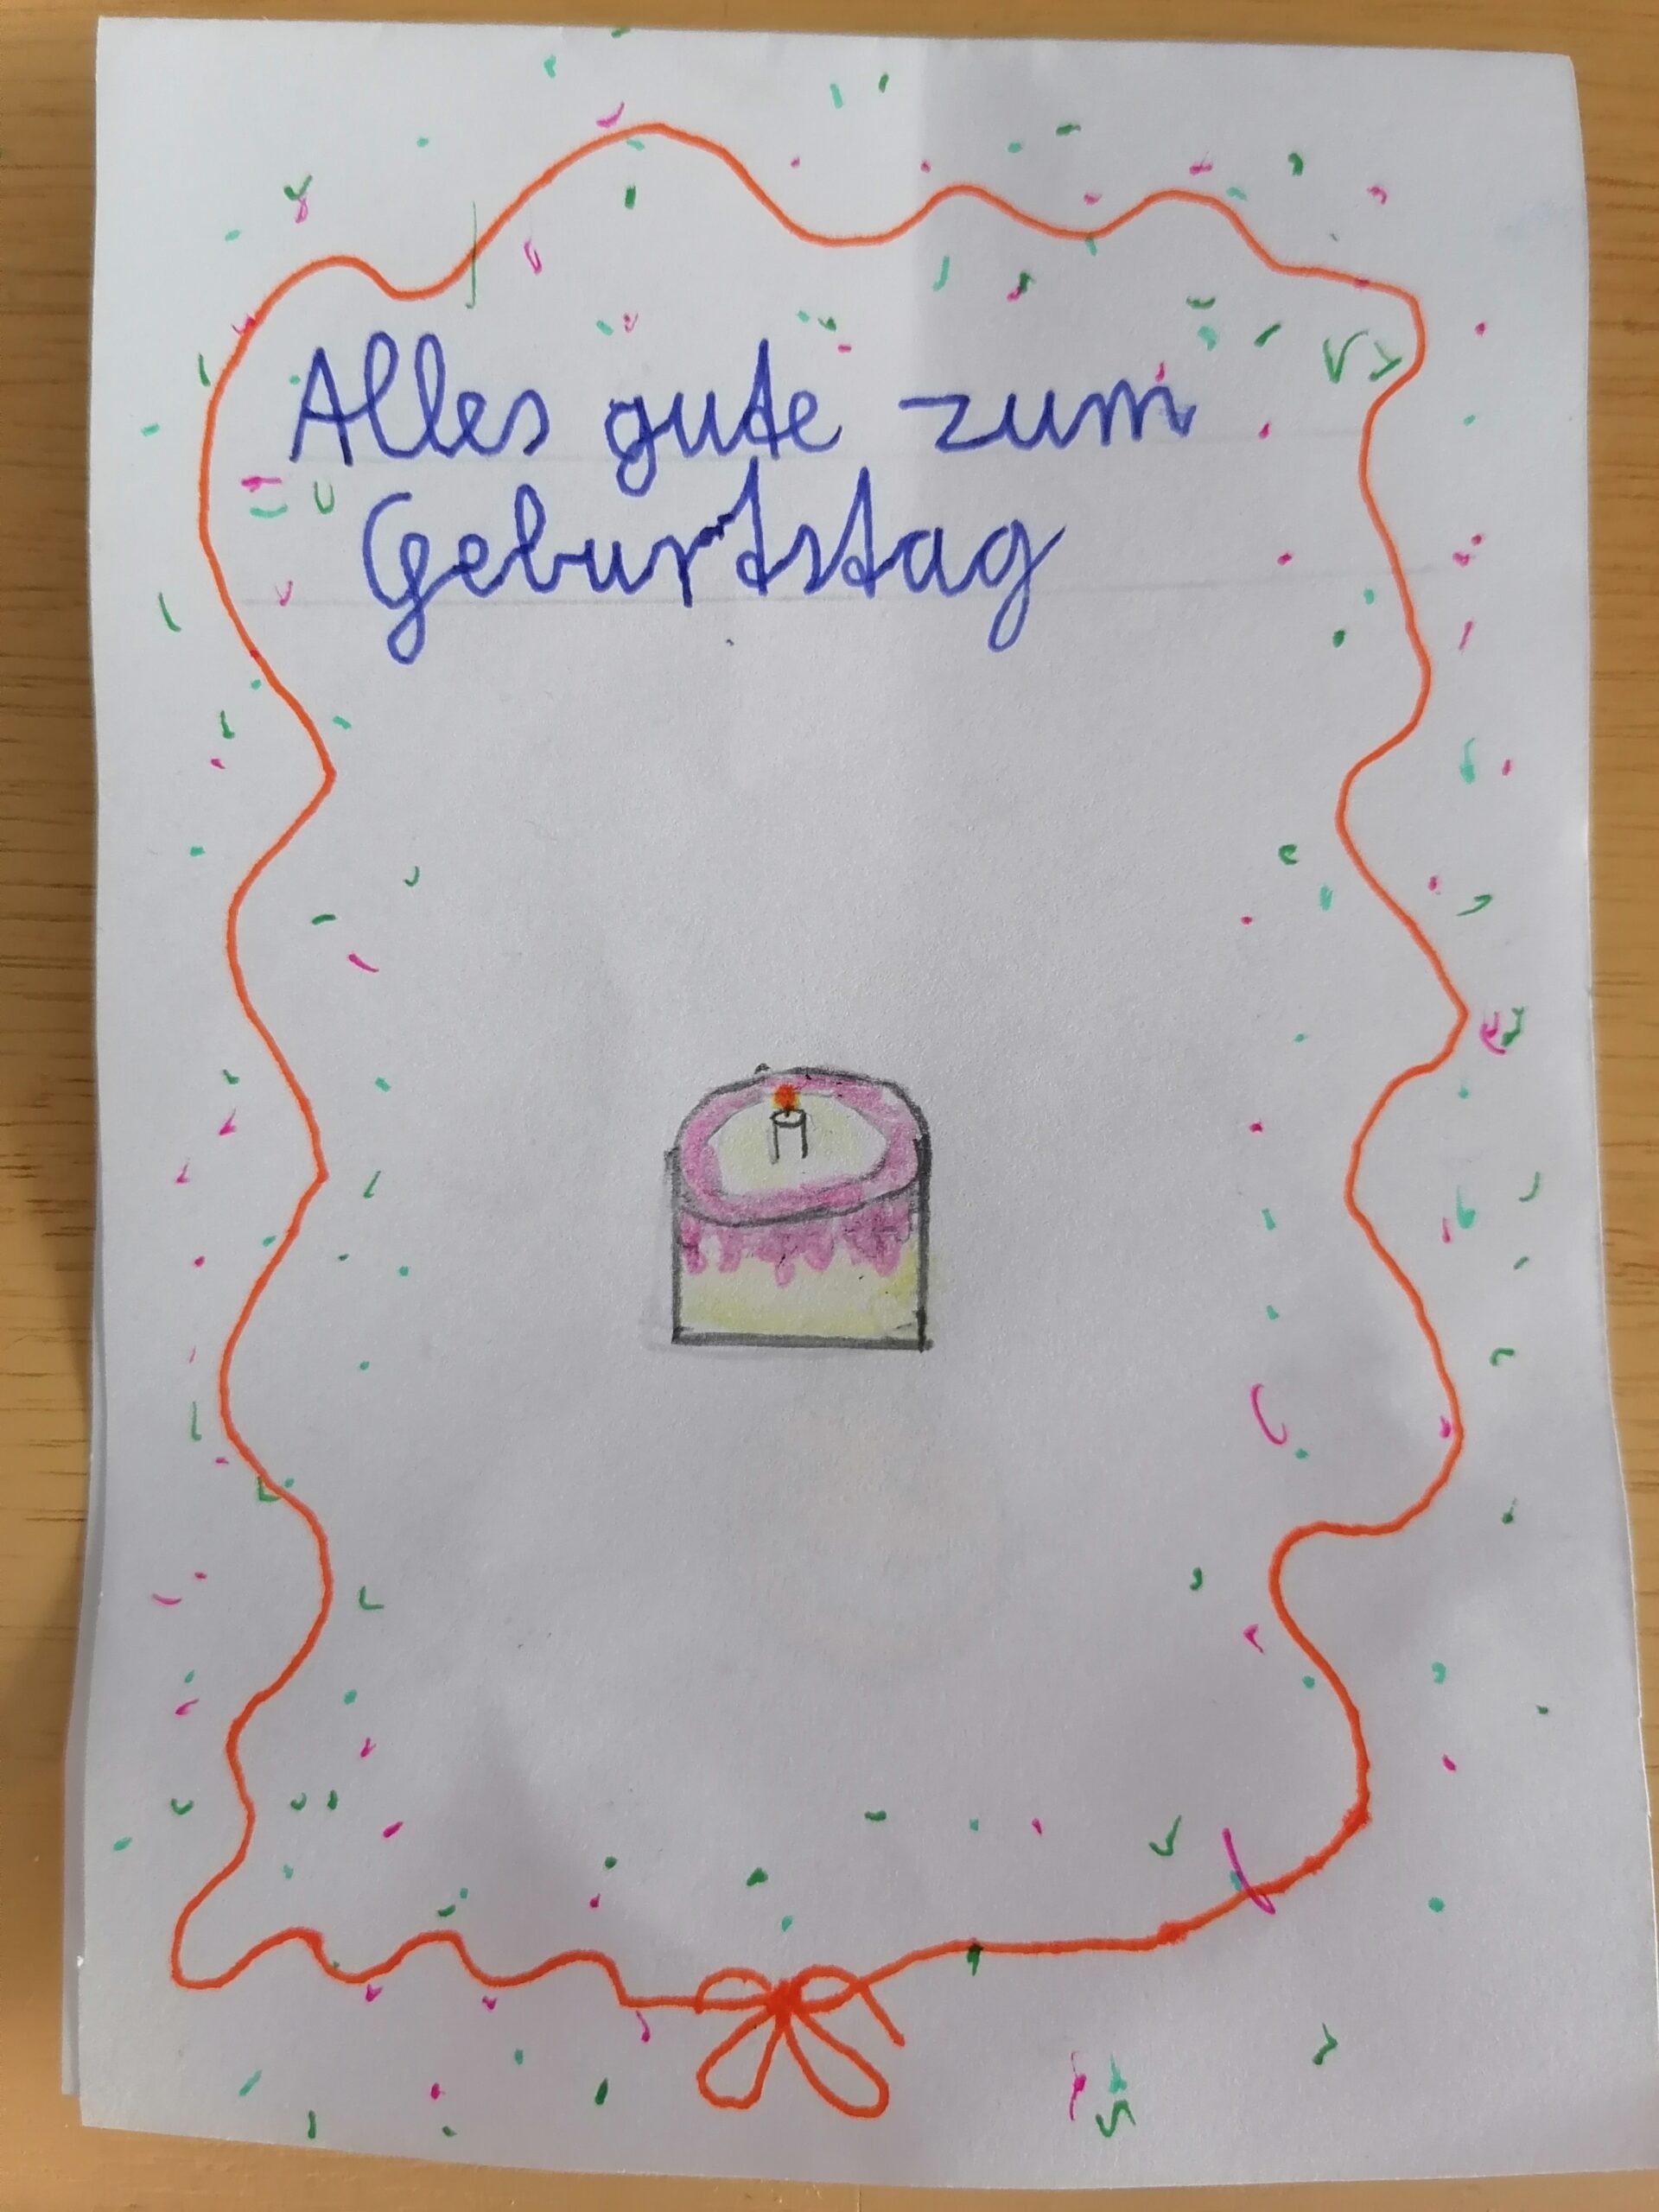 Alles gute zum
Geburtstag